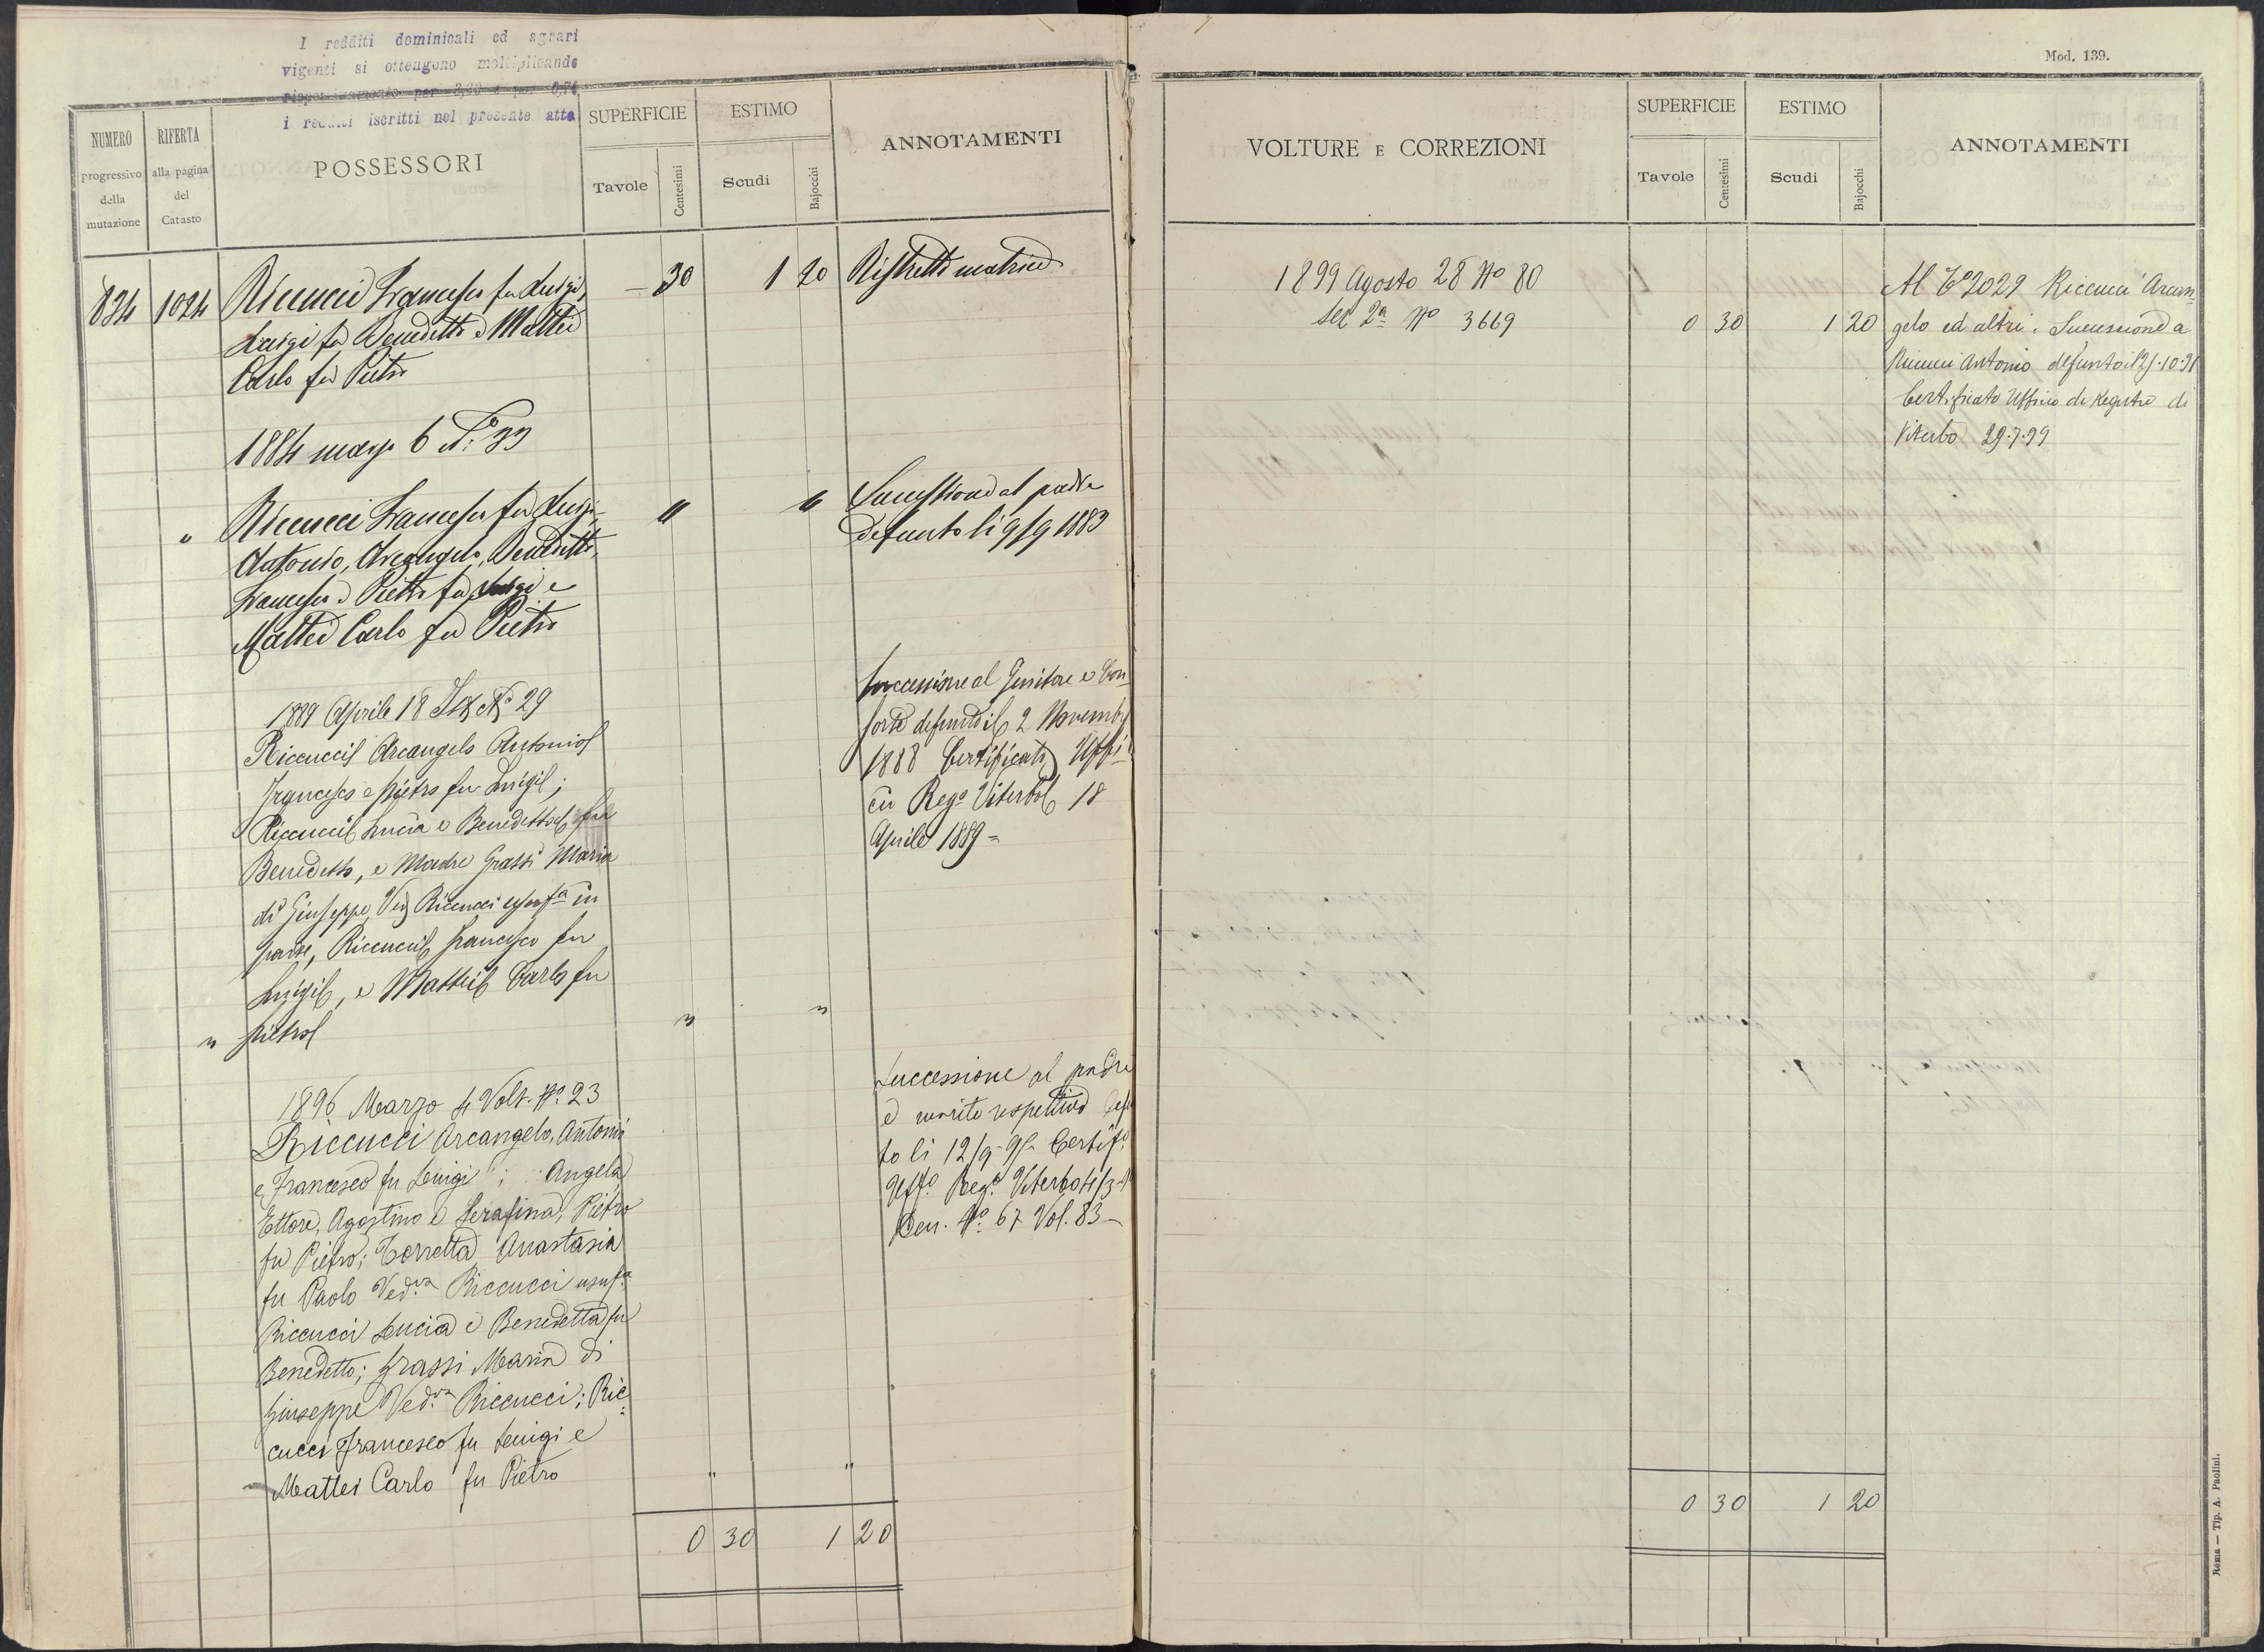 I redditi dominicali ed agrari
vigenti si ottengono moltiplicando
rispettivamente per 3,20 e per 0,70
i redditi iscritti nel presente atto
NUMERO
progressivo
della
mutazione
RIFERTA
alla pagina
del
Catasto
POSSESSORI
SUPERFICIE
Tavole
Centesimi
ESTIMO
Scudi
Bajocchi
ANNOTAMENTI
834 1024 Riccucci Francesco fu Luigi, — 30 1 20 Ristretto matrice
Luigi fu Benedetto e Mattei
Carlo fu Pietro
1884 marzo 6 N.o 33
" Riccucci Francesco fu Luigi, " " Successione al padre
defunto li 9/9 1883
Antonio, Arcangelo, Benedetto,
Francesco e Pietro fu Luigi e
Mattei Carlo fu Pietro
1889 Aprile 18 No 29
Riccucci Arcangelo Antonio
Francesco e Pietro fu Luigi;
Riccucci Lucia e Benedetta fu
Benedetto, e Madre Grassi Maria
di Giuseppe Ved Riccucci usuf.a in
parte, Riccucci Francesco fu
Luigi, e Mattei Carlo fu
" Pietro " "
Successione al Genitore e Con
sorte defunto il 2 Novembre
1888 Certificato Uffi
cio Rego Viterbo 18
Aprile 1889 =
1896 Marzo 4 Volt. No 23
Riccucci Arcangelo, Antonio
e Francesco fu Luigi; Angela,
Ettore, Agostino e Serafina, Pietro
fu Pietro; Torretta Anastasia
fu Paolo Ved.va Riccucci usuf.a
Riccucci Lucia e Benedetta fu
Benedetto; Grassi Maria di
Giuseppe Ved.va Riccucci; Ric=
cucci Francesco fu Luigi e
Mattei Carlo fu Pietro " "
Successione al padre
e marito respettivo defu
to li 12/9-95 Certif.o
Uff.o Reg.o Viterbo
Den. No 67 Vol. 83 —
0 30 1 20
Mod. 139.
VOLTURE E CORREZIONI
SUPERFICIE
Tavole
Centesimi
ESTIMO
Scudi
Bajocchi
ANNOTAMENTI
1899 Agosto 28 No 80
Sez 2a No 3669 0 30 1 20
Al 2029 Riccucci Arcan
gelo ed altri. Successione a
Riccucci Antonio defunto il
Certificato Ufficio di Registro di
Viterbo 29.7.99
0 30 1 20
Roma — Tip. A. Paolini.